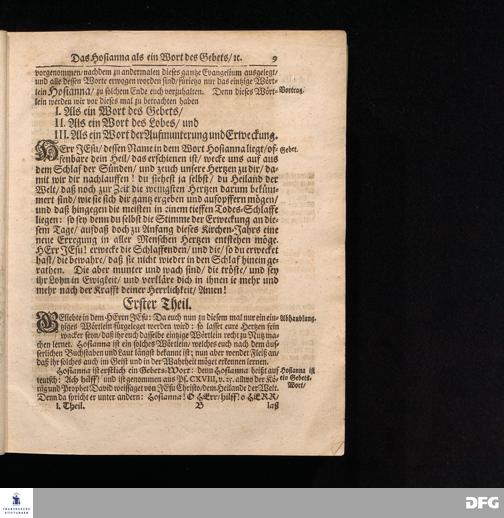 Das Hosianna als ein Wort des Gebets/ ꝛc. 9
vorgenommen/ nachdem zu andermalen dieses gantze Evangelium ausgelegt/
und alls dessen Worte erwogen worden sind/ fürietzo nur das eintzige Wört-
lein Hosianna/ zu solchem Ende euch vorzuhalten. Denn dieses Wört- Vortrag.
lein werden wir vor dieses mal zu betrachten haben
I. Als ein Wort des Gebets/
II. Als ein Wort des Lobes/ und
III. Als ein Wort der Aufmunterung und Erweckung.
HErr JEsu/ dessen Name in dem Wort Hosianna liegt/ of- Gebet.
fenbare dein Heil/ das erschienen ist/ wecke uns auf aus
dem Schlaf der Sünden/ und zeuch unsere Hertzen zu dir/ da-
mit wir dir nachlauffen! du siehest ja selbst/ du Heiland der
Welt/ daß noch zur Zeit die wenigsten Hertzen darum beküm-
mert sind/ wie sie sich dir gantz ergeben und aufopffern mögen/
und daß hingegen die meisten in einem tieffen Todes-Schlaffe
liegen: so sey denn du selbst die Stimme der Erweckung an die-
sem Tage/ aufdaß doch zu Anfang dieses Kirchen-Jahrs eine
neue Erregung in aller Menschen Hertzen entstehen möge.
HErr JEsu! erwecke die Schlaffenden/ und die/ so du erwecket
hast/ die bewahre/ daß sie nicht wieder in den Schlaf hinein ge-
rathen. Die aber munter und wach sind/ die tröste/ und sey
ihr Lohn in Ewigkeit/ und verkläre dich in ihnen ie mehr und
mehr nach der Krafft deiner Herrlichkeit/ Amen!
Erster Theil.
GEliebte in dem HErrn JEsu: Da euch nun zu diesem mal nur ein ein- Abhandlung.
tziges Wörtlein fürgeleget werden wird: so lasset eure Hertzen fein
wacker seyn/ daß ihr euch dasselbe eintzige Wörtlein recht zu Nutz ma-
chen lernet. Hosianna ist ein solches Wörtlein/ welches euch nach dem äus-
serlichen Buchstaben und Laut längst bekannt ist; nun aber wendet Fleiß an/
daß ihr solches auch im Geist und in der Wahrheit möget erkennen lernen.
Hosianna ist erstlich ein Gebets-Wort: denn Hosianna heißt auf Hosianna ist
teutsch: Ach hilff! und ist genommen aus Ps. CXVIII, v. 25. allwo der Kö- ein Gebets-
nig und Prophet David weissaget von JEsu Christo/ dem Heilande der Welt. Wort/
Denn da spricht er unter andern: Hosianna! O HErr/ hilff! o HERR/
I. Theil. B laß
FRANCKESCHE
STIFTUNGEN
DFG